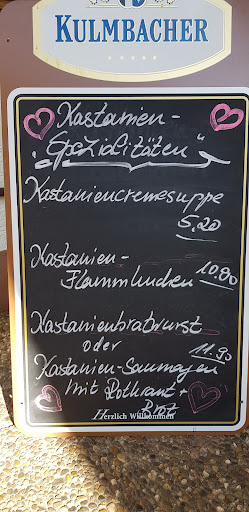 KULMBACHER
Kastanien-
"Spezialitäten"
Kastaniencremesuppe
5,20
Kastanien-
Flammkuchen 10,90
Kastanienbratwurst
oder 11,90
Kastanien-Saumagen
mit Rotkraut +
Brot
Herzlich Willkommen